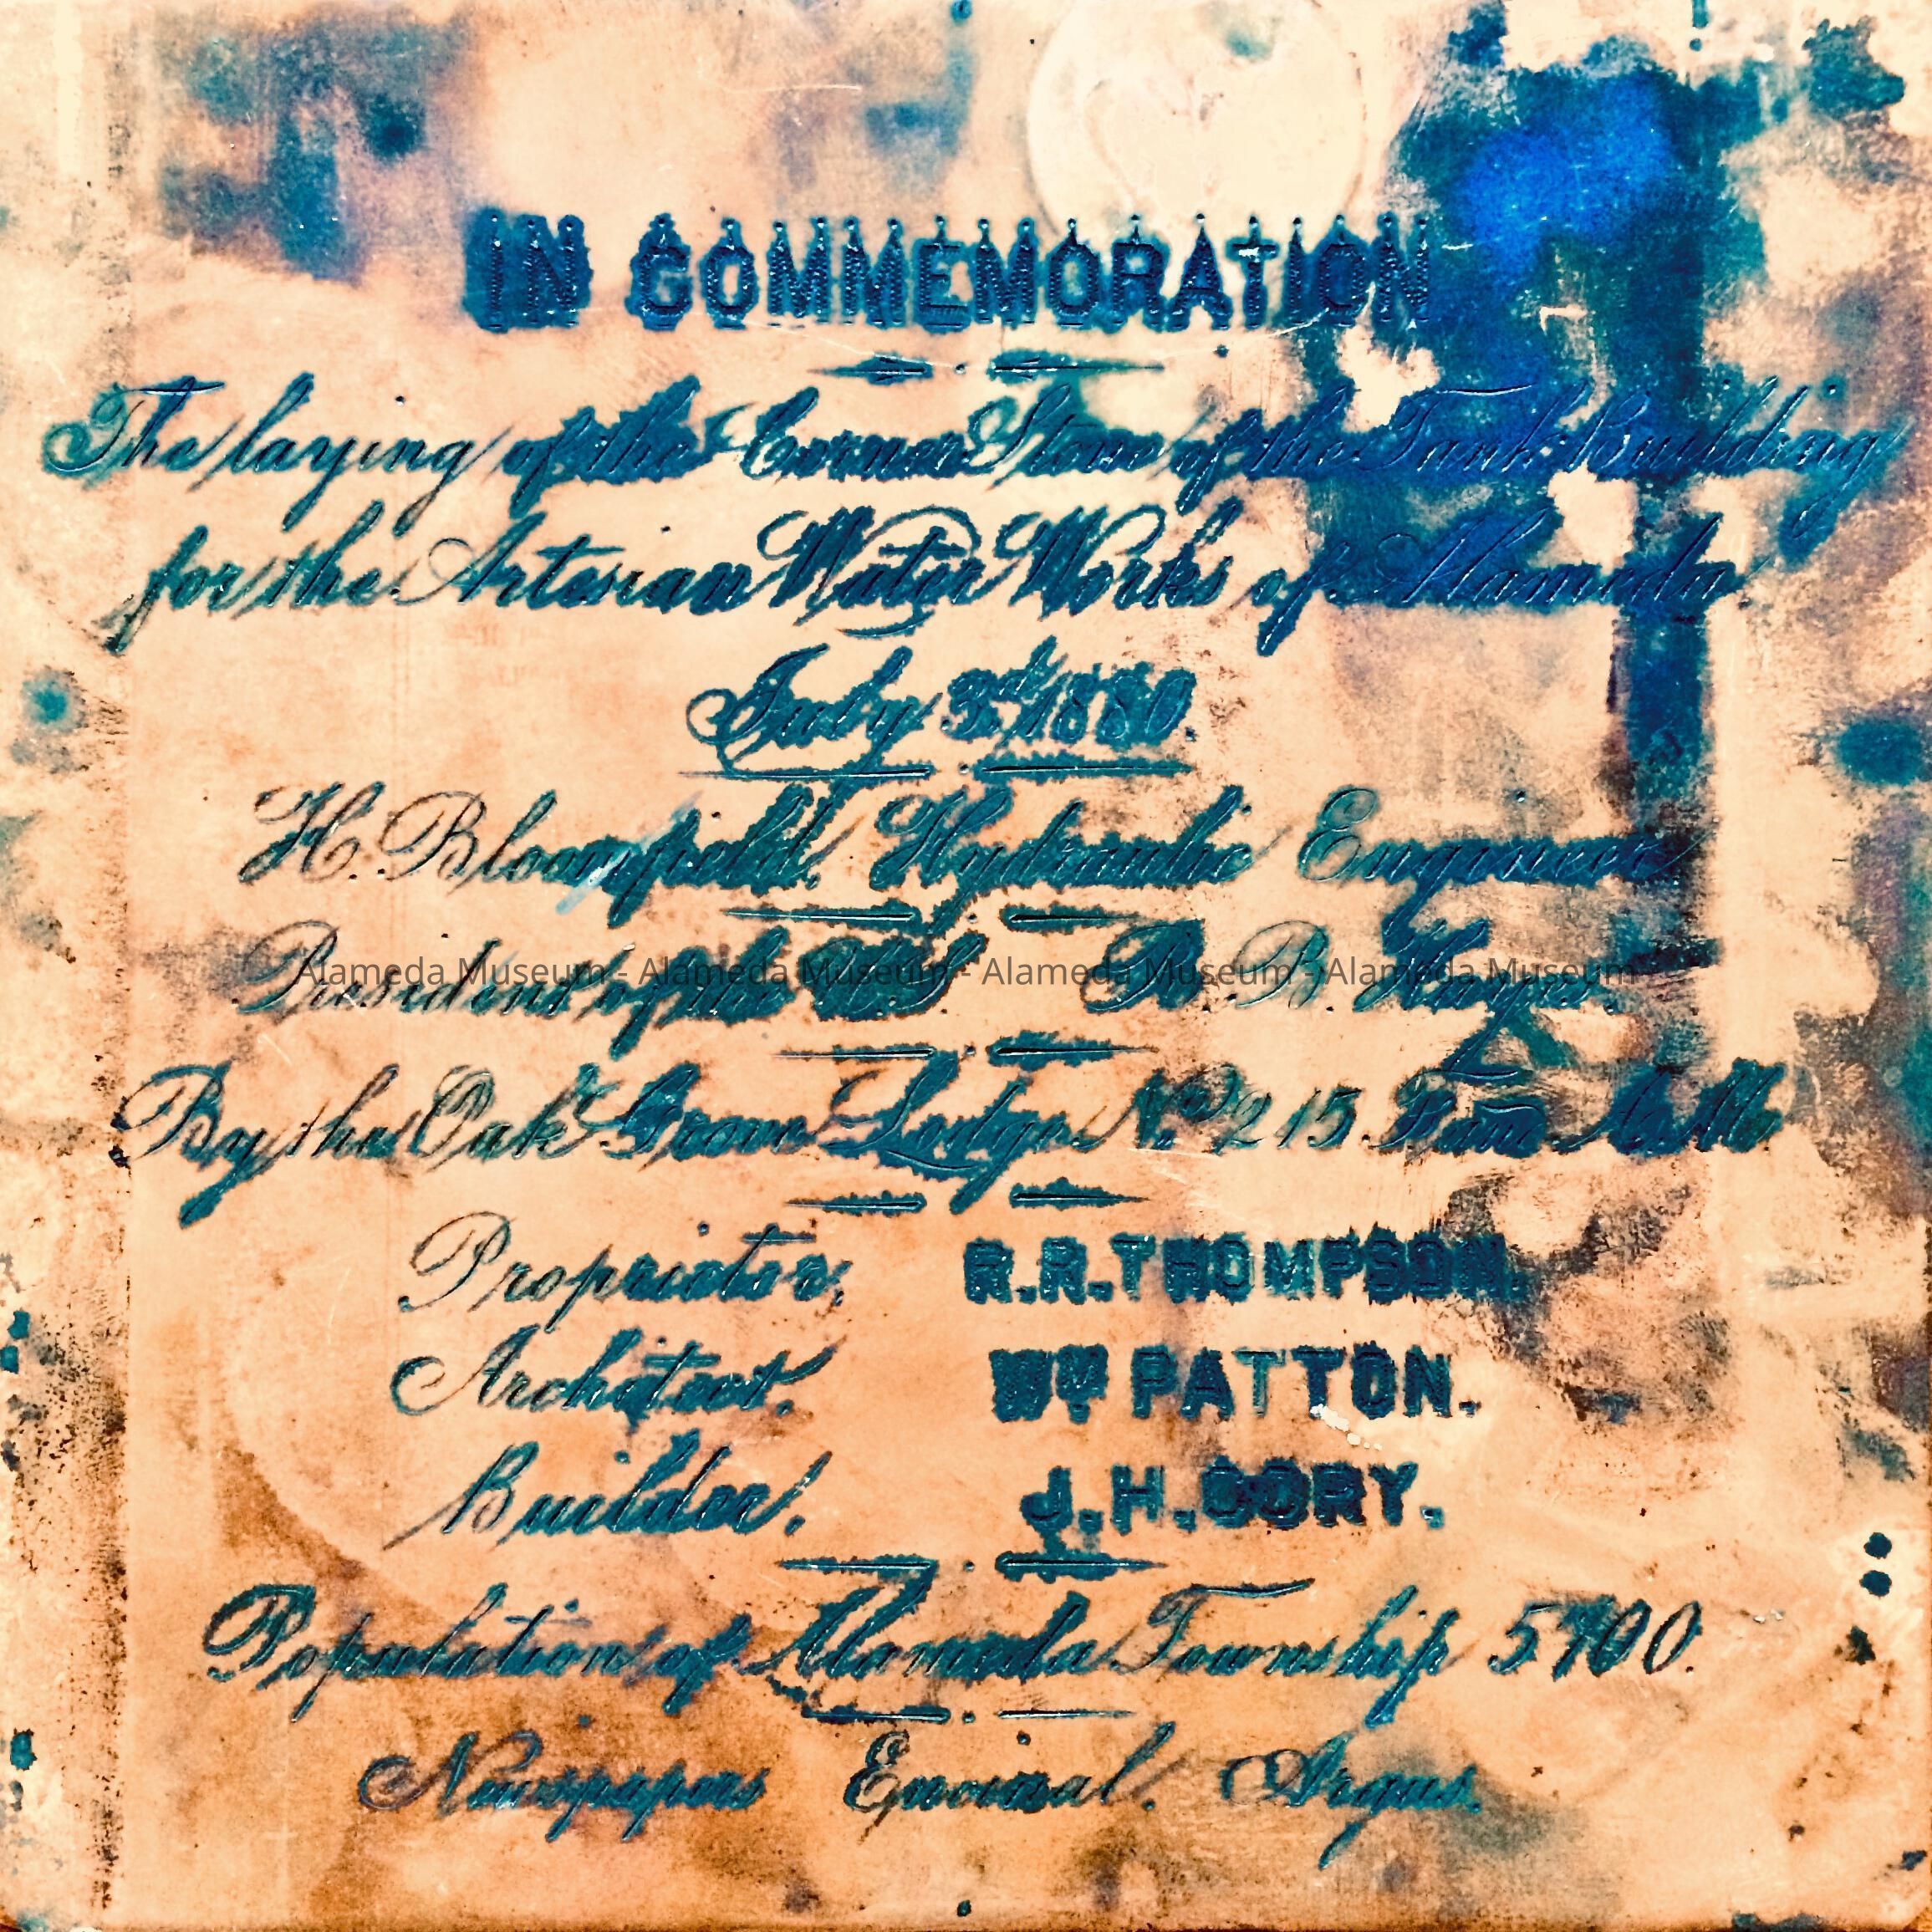 IN COMMEMORATION
The laying of the Corner Stone of the Tank Building
for the Artesian Water Works of Alameda.
July 3rd 1880.
H. Bloomfield. Hydraulic Engineer
President of the U.S R. B. Hayes.
Alameda Museum - Alameda Museum - Alameda Museum - Alameda Museum
By the Oak Grove Lodge No 215 F&
Proprietor, R.R.THOMPSON.
Architect, WM PATTON.
Builder, J.H.CORY.
Population of Alameda Township 5700.
Newspapers Encinal. Argus.